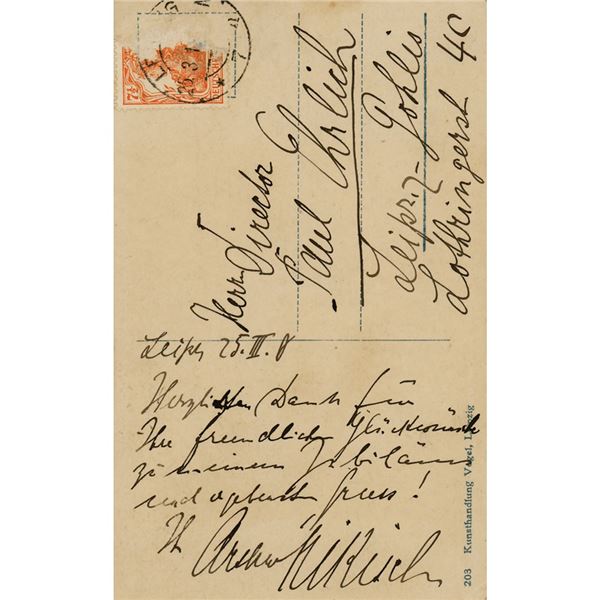 Herrn Director
Paul Ehrlich
Leipzig-Gohlis
Lothringerst 4C
25.III.
Herzlichen Dank für
Ihre freundlichen Glückwünsche
zu meinem Jubiläum
und Gruss!
Ihr Arthur Nikisch
203 Kunsthandlung Vogel, Leipzig
7½